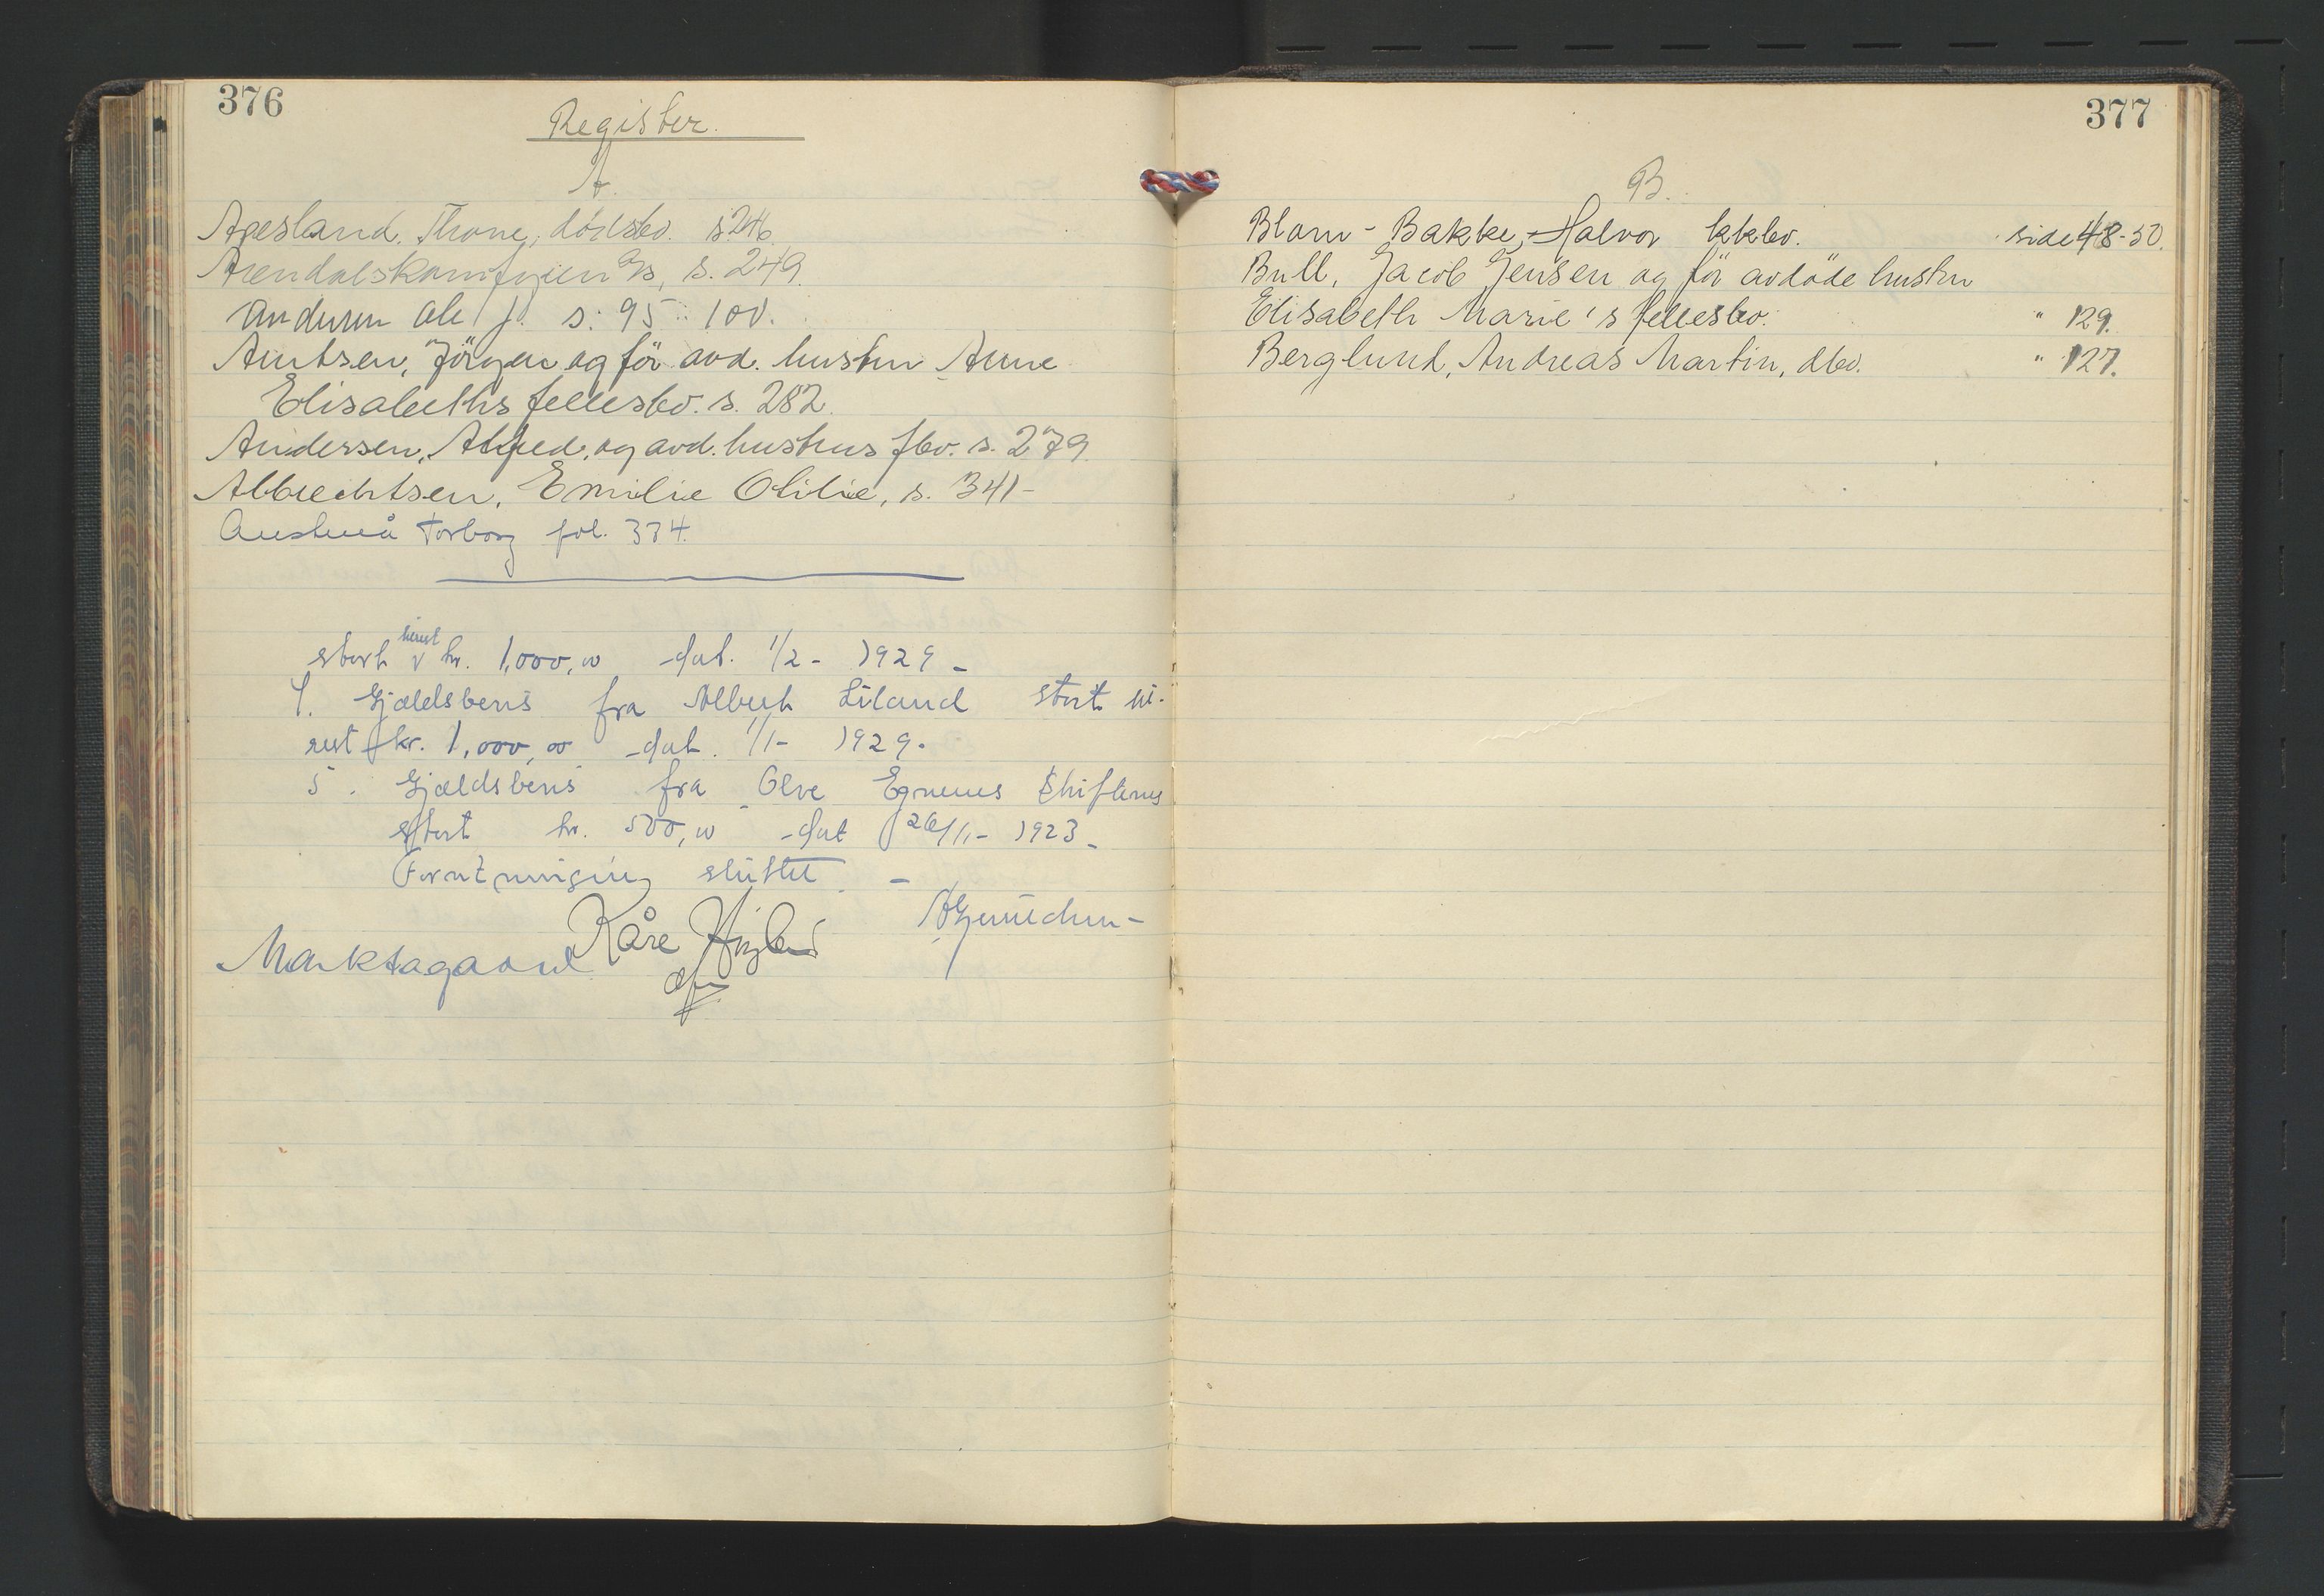 376
Register.
A.
Agesland. Throne, dödsbo. s 246.
Arendalskomfyren A/s, s. 249.
Andersen Ole J. s: 95 100.
Arntsen, Jörgen og för avd. hustru Anne
Elisabeths fellesbo. s. 282.
Andersen, Alfred, og avd. hustrus fbo. s. 279
Albrechtsen, Emilie Otilie, s. 341-
Torborg fol. 334.
stort kr. 1,000,00 dat. 1/2- 1929-
4. Gjældsbevis fra Albert Liland stort ni-
rest kr. 1,000,00 dat. 1/1- 1929.
5. Gjældsbevis fra Olve Skiftenes
stort kr. 500,00 dat 26/11- 1923-
sluttet. -
Kåre
377
B.
Blom - Bakke, Halvor kkbo. side 48-50.
Bull, Jacob Jensen og för avdöde hustru
Elisabeth Marie's fellesbo. " 129.
Berglund, Andreas Martin, dbo. " 127.